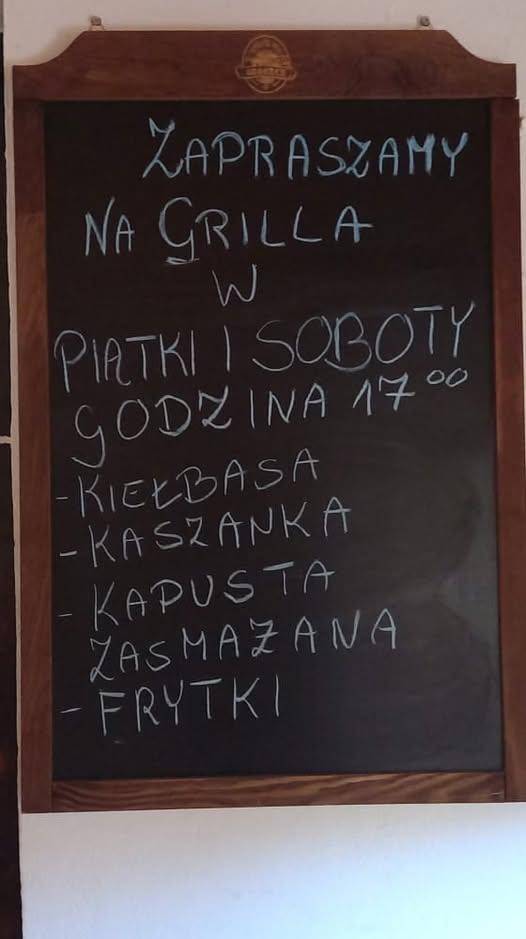 ZAPRASZAMY
NA GRILLA
W
PIĄTKI I SOBOTY
GODZINA 17⁰⁰
-KIEŁBASA
-KASZANKA
-KAPUSTA
ZASMAZANA
-FRYTKI